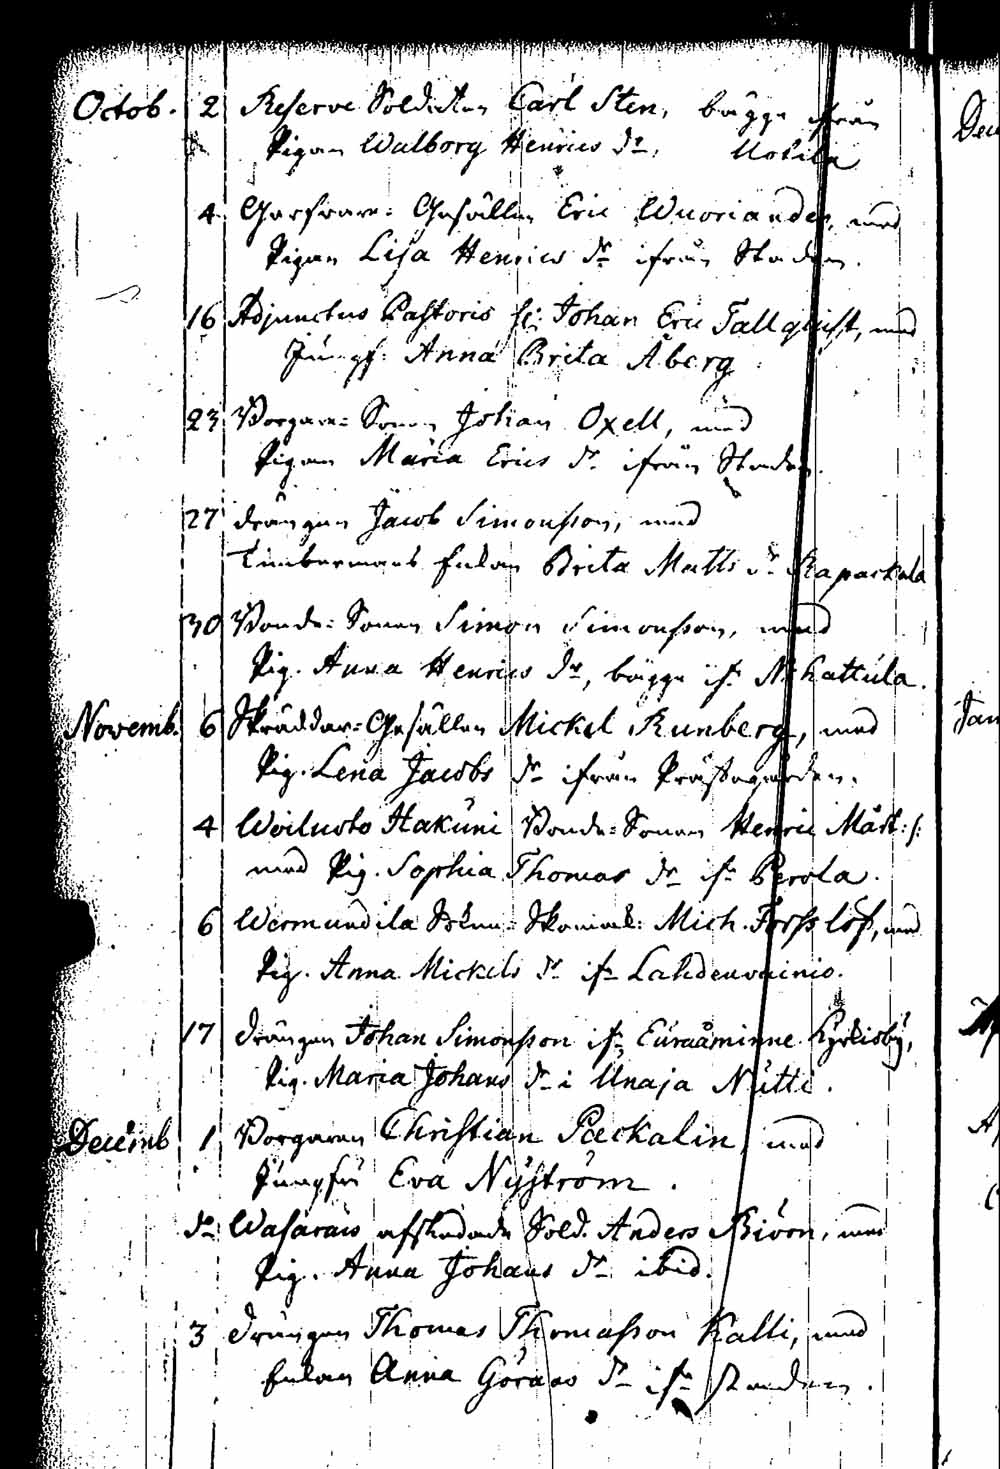 Octob. 2 Reserve Soldaten Carl Sten, bägge ifrån
Pigan Walborg Henrics dr, Uotila
4 Garfvare-Gesällen Eric Wuoriander, med
Pigan Lisa Henrics dr ifrån Staden.
16 Adjunctus Pastoris Johan Eric Tallquist, med
Jungf: Anna Brita Åberg
23 Borgare-Sonen Johan Oxell, med
Pigan Maria Erics dr ifrån Staden.
27 drängen Jacob Simonsson, med
Timbermans Enkan Brita Matts dr Kapackala
30 Bonde-Sonen Simon Simonsson, med
Pig. Anna Henrics dr, bägge ifr Nihattula.
Novemb. 6 Skräddar-Gesällen Mickel Runberg, med
Pig. Lena Jacobs dr ifrån Prästegården.
4 Woiluoto Hakuni Bonde-Sonen Henric Mårt:s:
med Pig. Sophia Thomas dr ifr Perola.
6 Wermundila Sokne-Skomak: Mich. Forsslöf, med
Pig. Anna Mickels dr ifr Lahdenvainio.
17 drängen Johan Simonsson ifr Euraåminne Kyrkioby,
Pig. Maria Johans dr i Unaja Nutti.
Decemb 1 Borgaren Christian Packalin, med
Jungfr Eva Nyström.
dr Wasarais afskedade Sold. Anders Biörn, med
Pig. Anna Johans dr ibid.
3 drängen Thomas Thomasson Kalli, med
Enkan Anna Görans dr ifr staden.